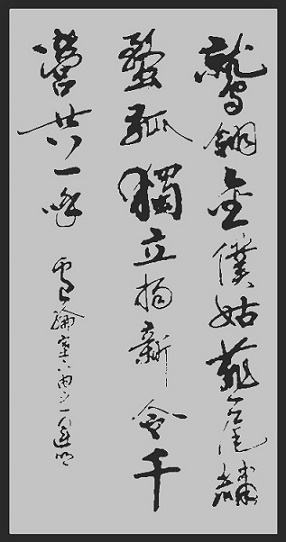 鷲翎金僕姑燕尾繡
蝥弧獨立揚新令千
營共一呼
盧綸塞下曲之一